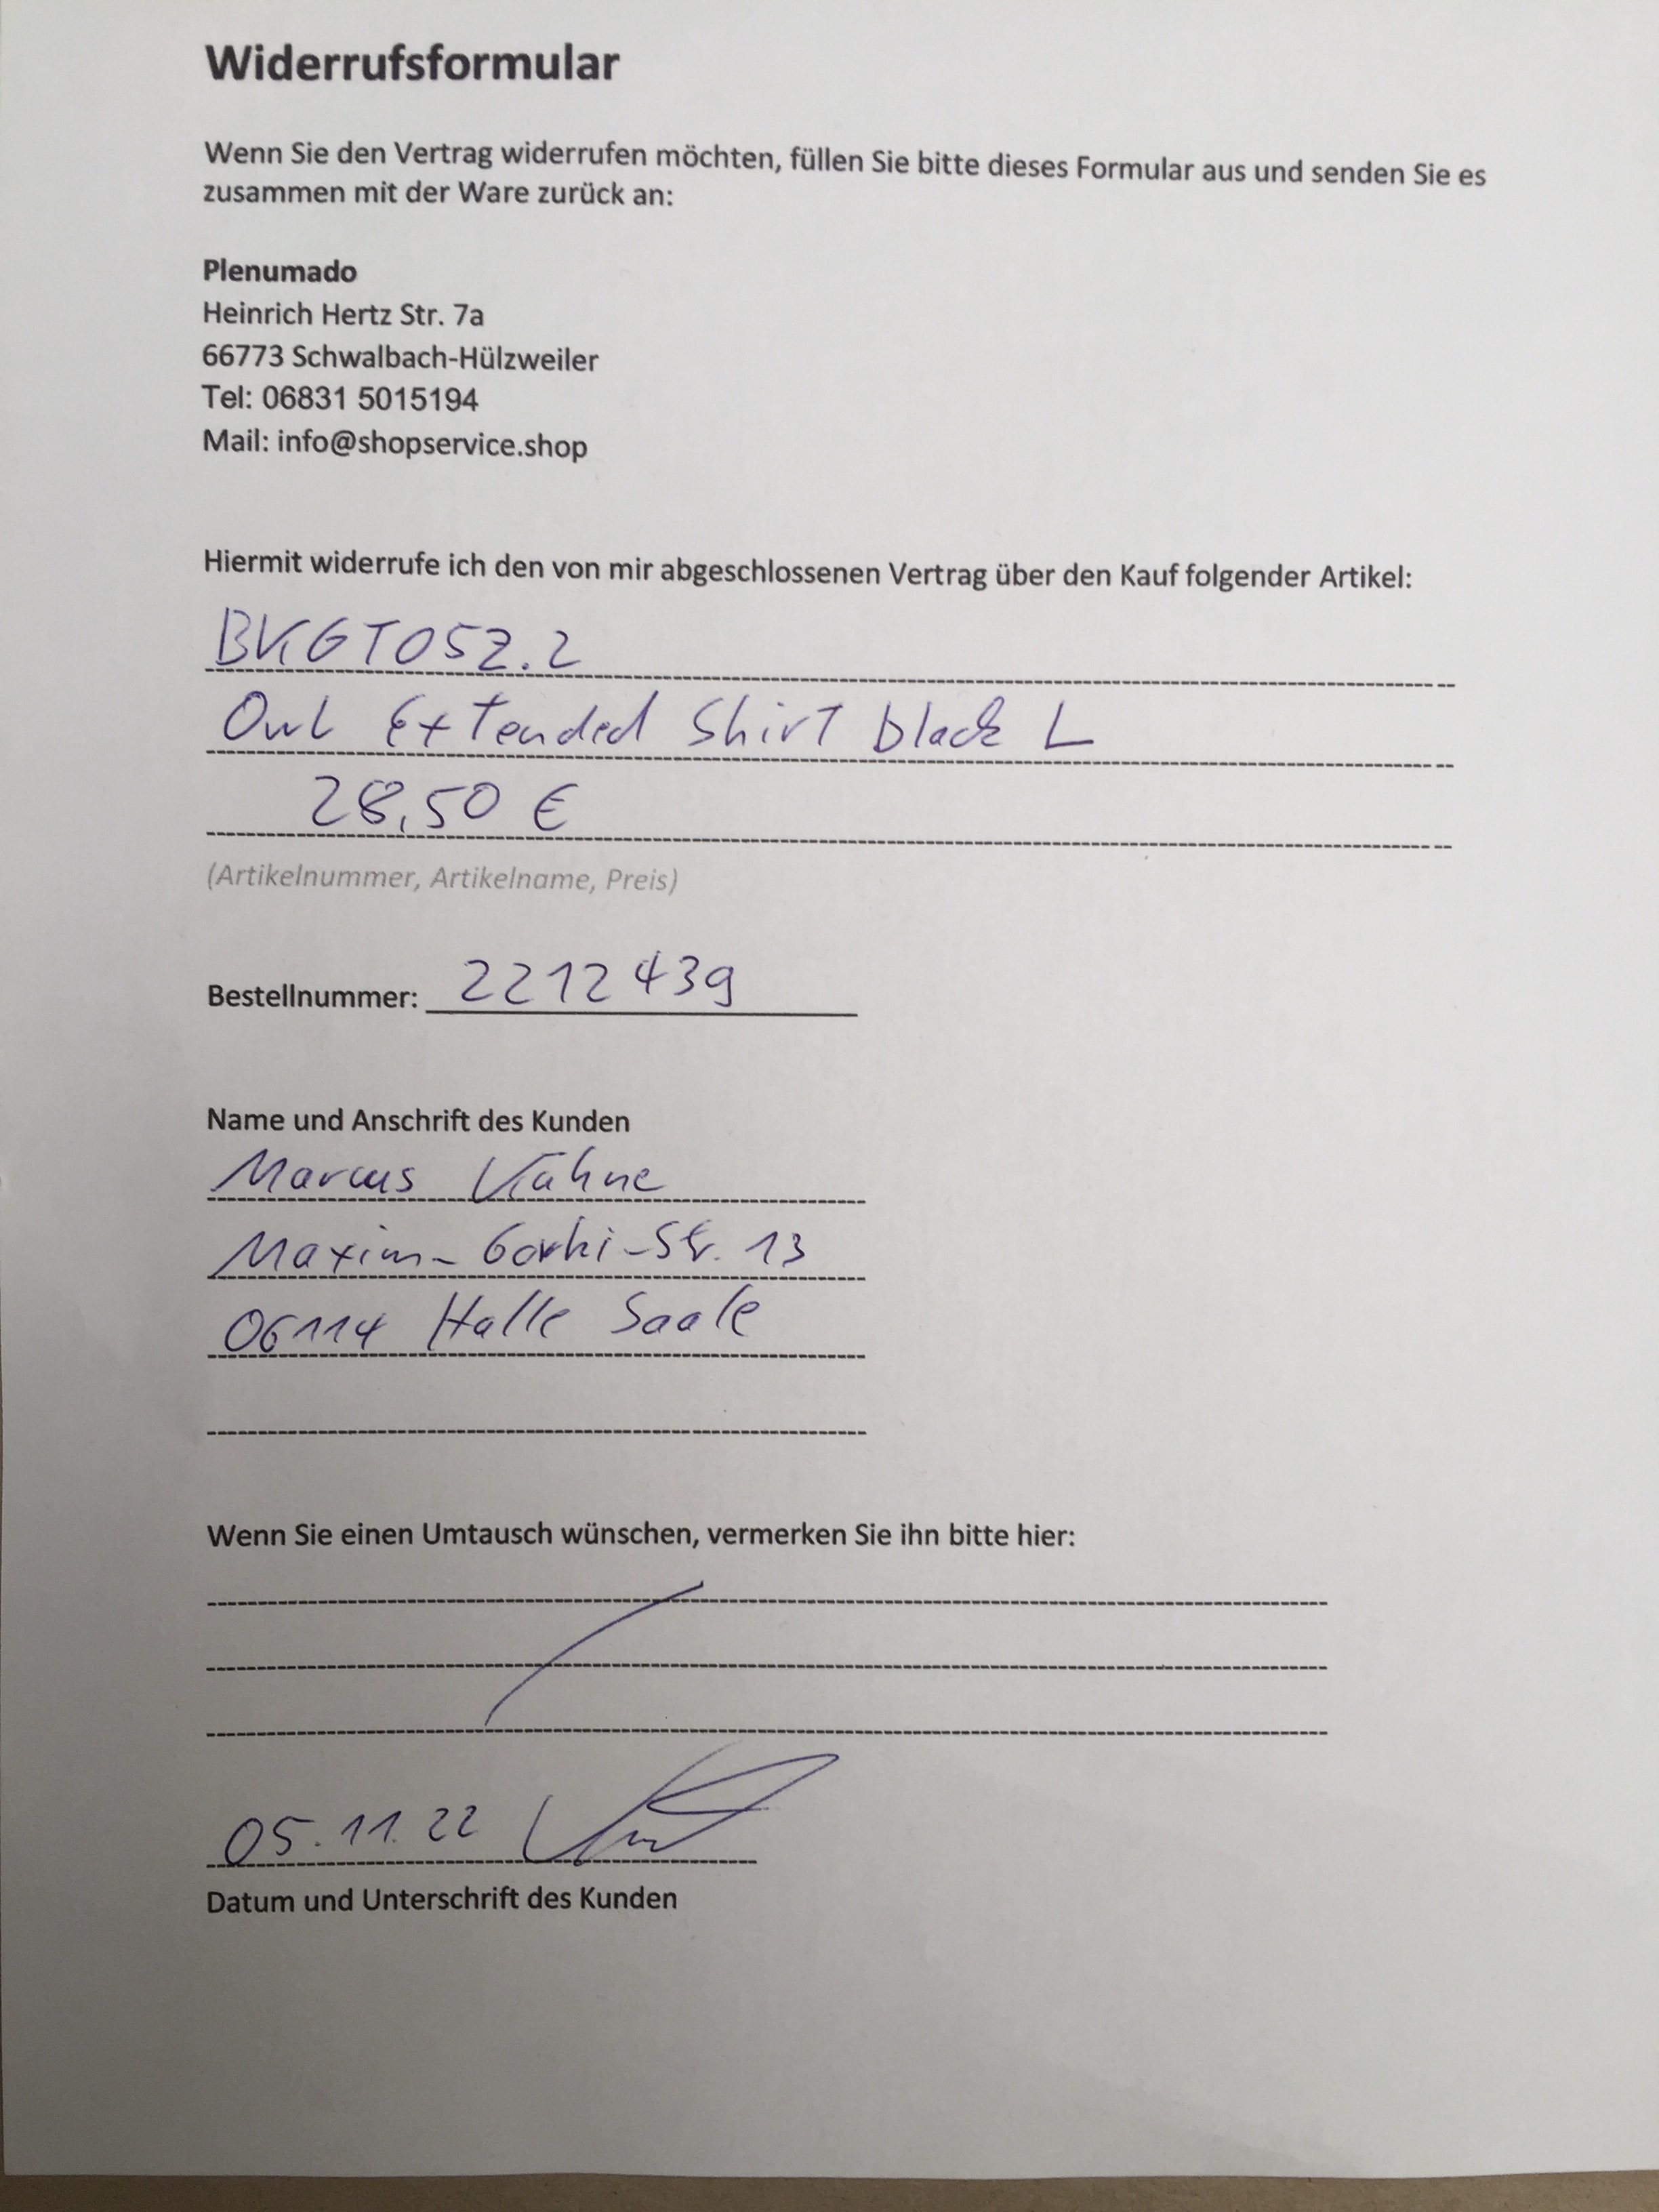 Widerrufsformular
Wenn Sie den Vertrag widerrufen möchten, füllen Sie bitte dieses Formular aus und senden Sie es
zusammen mit der Ware zurück an:
Plenumado
Heinrich Hertz Str. 7a
66773 Schwalbach-Hülzweiler
Tel: 06831 5015194
Mail: info@shopservice.shop
Hiermit widerrufe ich den von mir abgeschlossenen Vertrag über den Kauf folgender Artikel:
BKGT052.2
Owl Extended Shirt black L
28,50 €
(Artikelnummer, Artikelname, Preis)
Bestellnummer: 2212439
Name und Anschrift des Kunden
Marcus Kähne
Maxim-Gorki-Str. 13
06114 Halle Saale
Wenn Sie einen Umtausch wünschen, vermerken Sie ihn bitte hier:
05.11.22
Datum und Unterschrift des Kunden